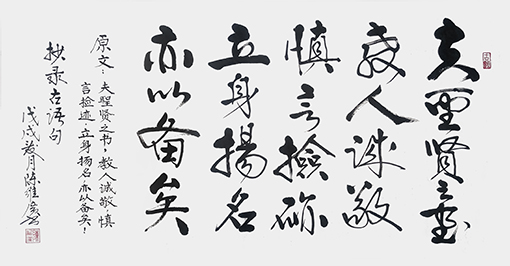 夫聖賢之書
教人诚敬
慎言撿跡
立身揚名
亦以備矣
原文：夫聖贤之书，教人诚敬，慎
言捡迹，立身扬名，亦以备矣！
抄录古语句
戊戌月陈维书